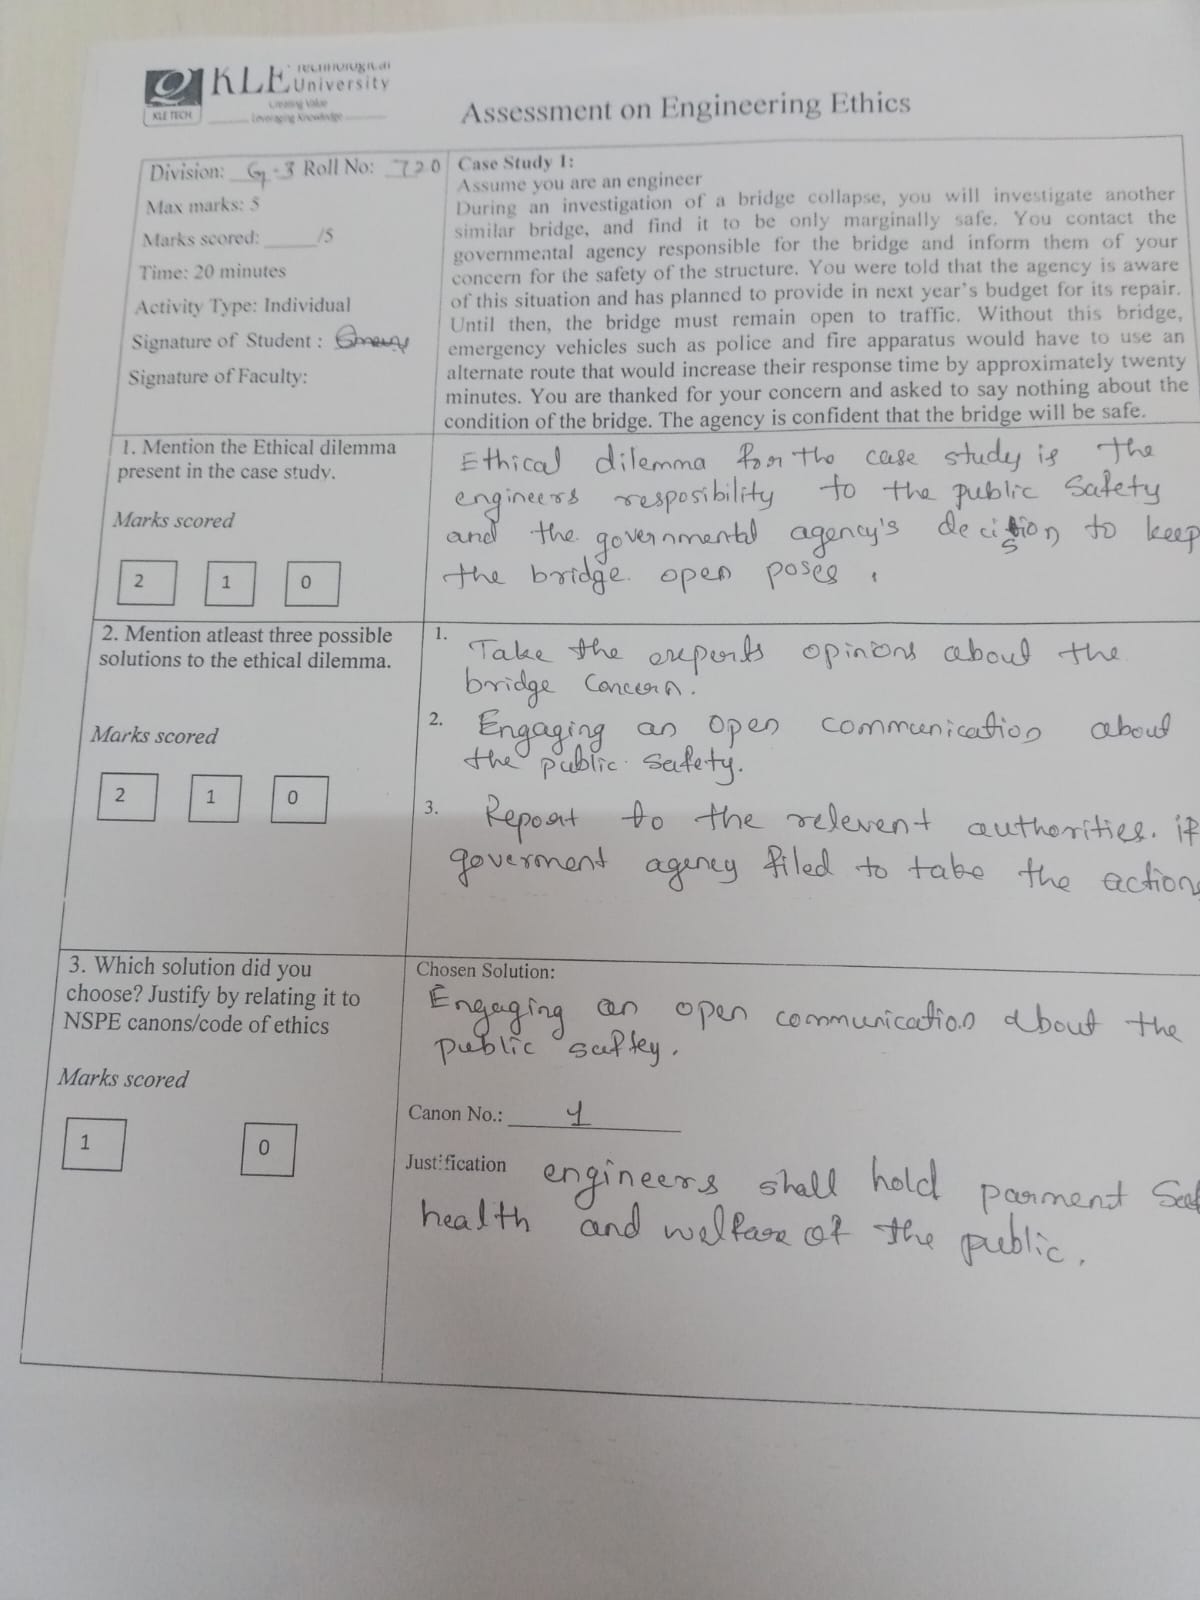 KLE Technological
University
Creating Value
Leveraging Knowledge
KLE TECH
Assessment on Engineering Ethics
Division: G-3 Roll No: 720
Max marks: 5
Marks scored: ______/5
Time: 20 minutes
Activity Type: Individual
Signature of Student :
Signature of Faculty:
Case Study 1:
Assume you are an engineer
During an investigation of a bridge collapse, you will investigate another
similar bridge, and find it to be only marginally safe. You contact the
governmental agency responsible for the bridge and inform them of your
concern for the safety of the structure. You were told that the agency is aware
of this situation and has planned to provide in next year's budget for its repair.
Until then, the bridge must remain open to traffic. Without this bridge,
emergency vehicles such as police and fire apparatus would have to use an
alternate route that would increase their response time by approximately twenty
minutes. You are thanked for your concern and asked to say nothing about the
condition of the bridge. The agency is confident that the bridge will be safe.
1. Mention the Ethical dilemma
present in the case study.
Marks scored
2 1 0
Ethical dilemma for the case study is the
engineers resposibility to the public Safety
and the governmental agency's decision to keep
the bridge open poses.
2. Mention atleast three possible
solutions to the ethical dilemma.
Marks scored
2 1 0
1. Take the experts opinions about the
bridge concern.
2. Engaging an open communication about
the public safety.
3. Report to the relevent authorities. if
goverment agency filed to take the actions
3. Which solution did you
choose? Justify by relating it to
NSPE canons/code of ethics
Marks scored
1 0
Chosen Solution:
Engaging an open communication about the
public saftey.
Canon No.: 1
Justification engineers shall hold parment Saf
health and welfare of the public.